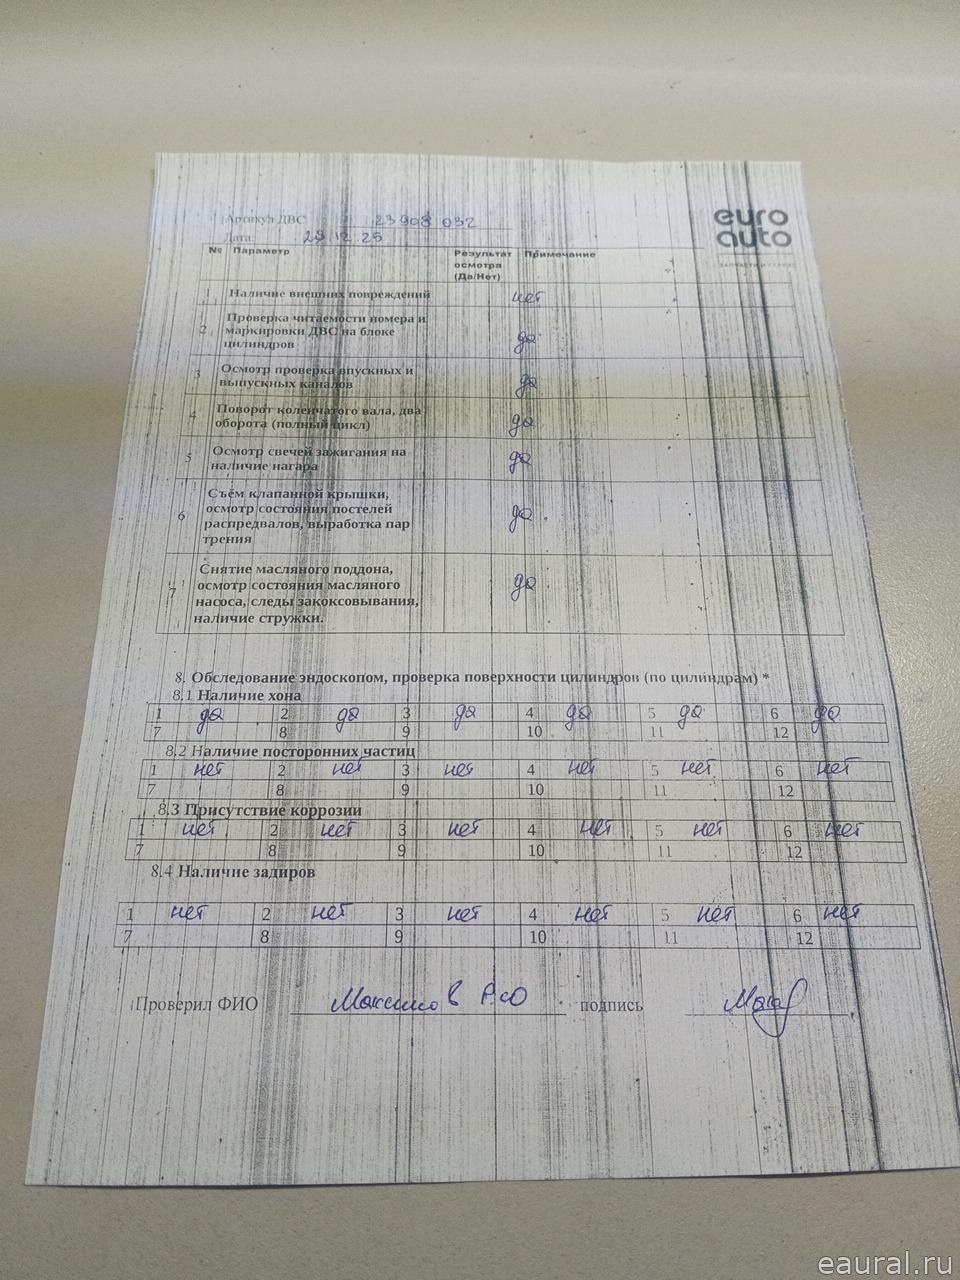 euro
auto
Артикул ДВС 23908 032
Дата 29.12.25
№ Параметр Результат осмотра (Да/Нет) Примечание
1 Наличие внешних повреждений нет
2 Проверка читаемости номера и
маркировки ДВС на блоке
цилиндров да
3 Осмотр проверка впускных и
выпускных каналов да
4 Поворот коленчатого вала, два
оборота (полный цикл) да
5 Осмотр свечей зажигания на
наличие нагара да
6 Съём клапанной крышки,
осмотр состояния постелей
распредвалов, выработка пар
трения да
7 Снятие масляного поддона,
осмотр состояния масляного
насоса, следы закоксовывания,
наличие стружки. да
8. Обследование эндоскопом, проверка поверхности цилиндров (по цилиндрам) *
8.1 Наличие хона
1 да 2 да 3 да 4 да 5 да 6 да
7 8 9 10 11 12
8.2 Наличие посторонних частиц
1 нет 2 нет 3 нет 4 нет 5 нет 6 нет
7 8 9 10 11 12
8.3 Присутствие коррозии
1 нет 2 нет 3 нет 4 нет 5 нет 6 нет
7 8 9 10 11 12
8.4 Наличие задиров
1 нет 2 нет 3 нет 4 нет 5 нет 6 нет
7 8 9 10 11 12
Проверил ФИО Максимов подпись
eaural.ru